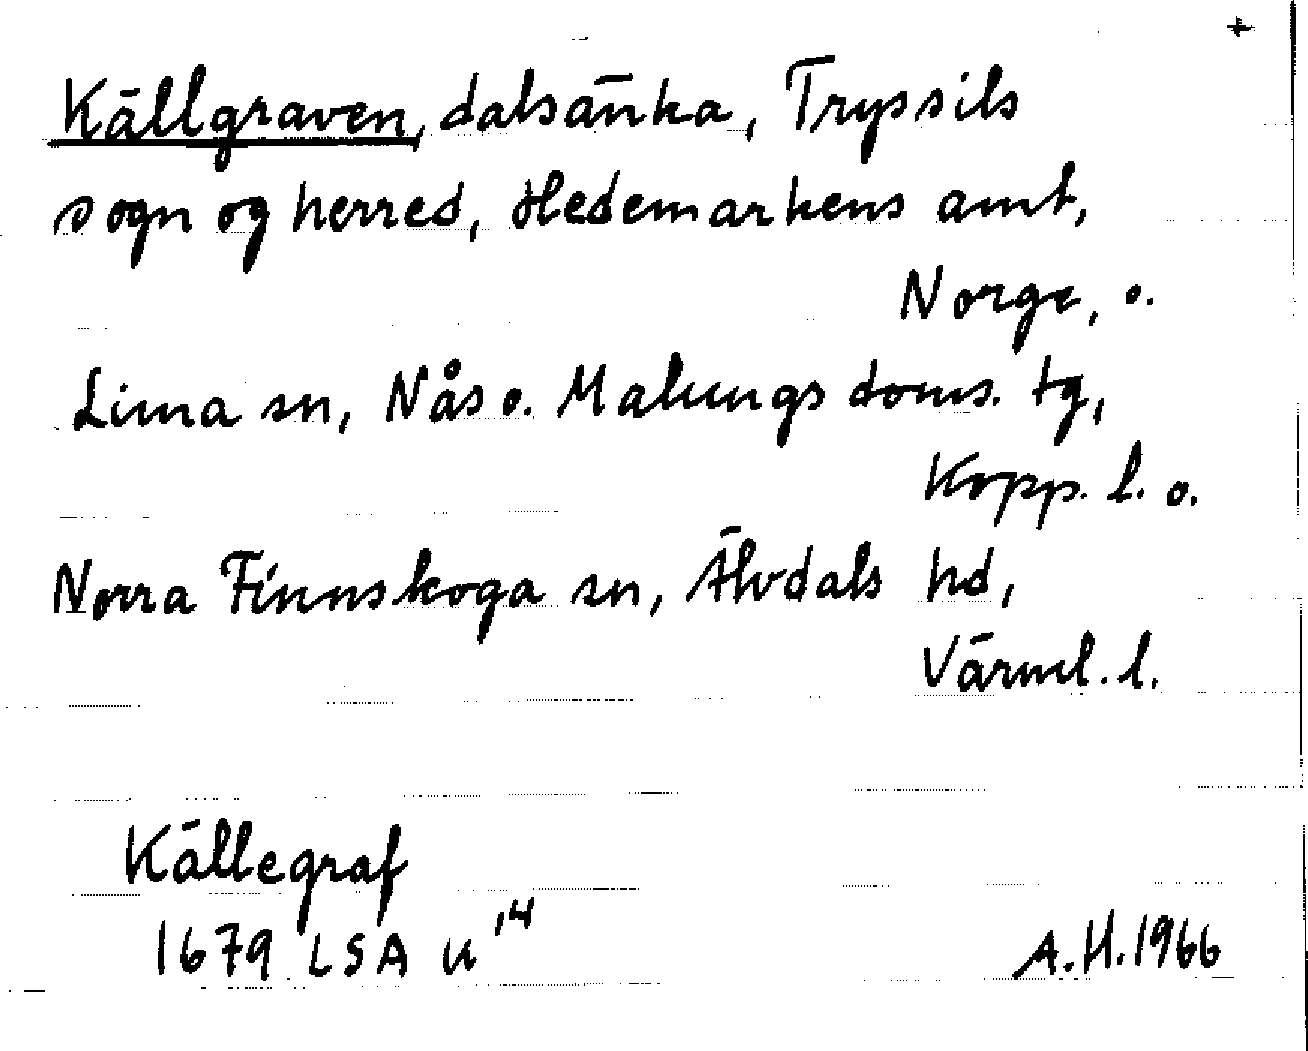 +
Källgraven, dalsänka, Tryssils
sogn og herred, Hedemarkens amt,
Norge, o.
Lima sn, Nås o. Malungs doms. tg,
Kopp. l. o.
Norra Finnskoga sn, Älvdals hd,
Värml. l.
Källegraf
1679 LSA u '14
A.H. 1966